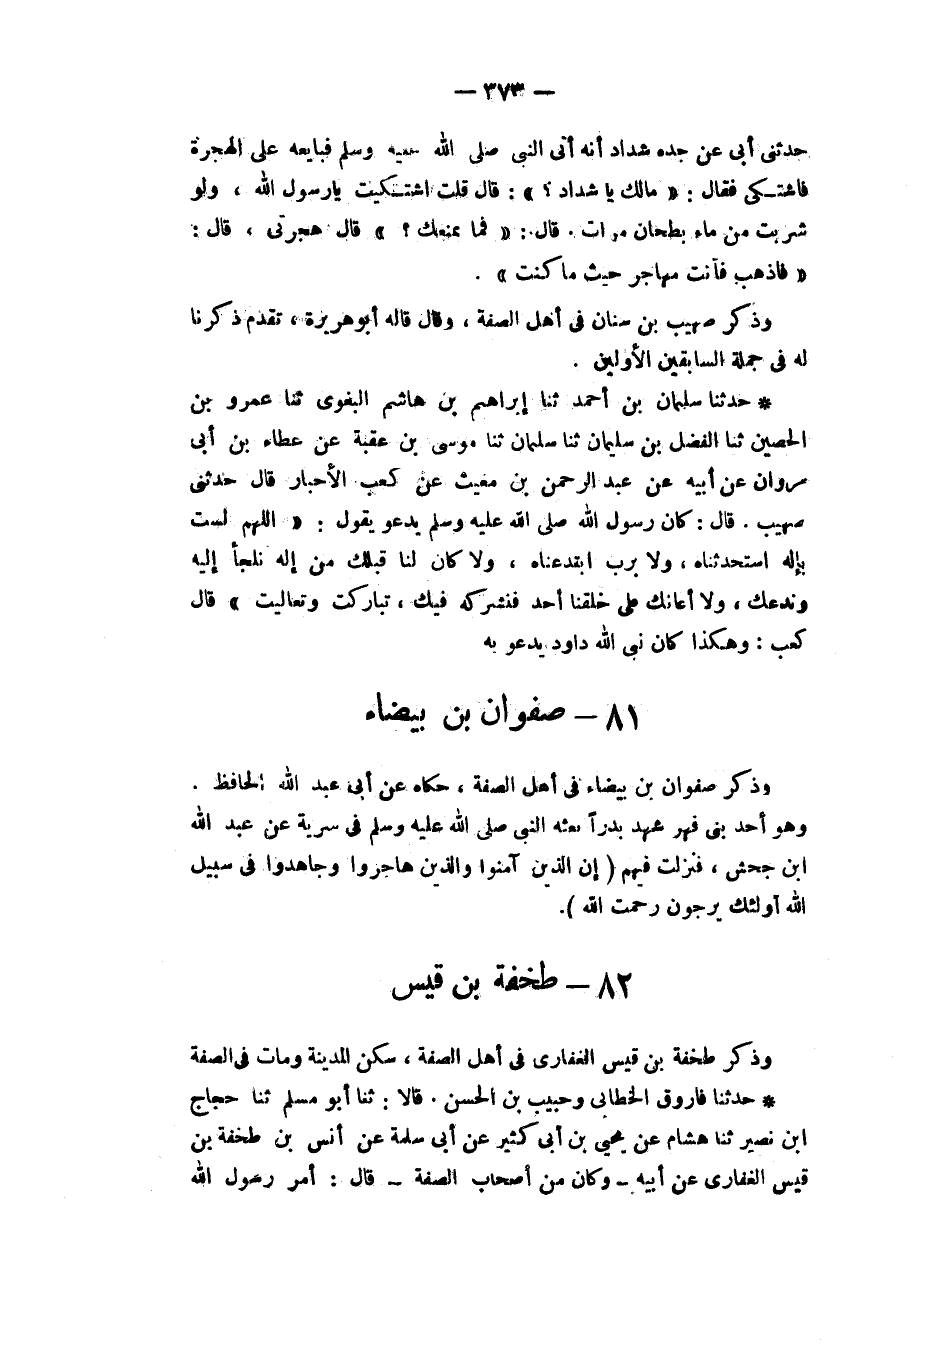 — ٣٧٣ —
حدثنى أبى عن جده شداد أنه أتى النبى صلى الله عليه وسلم فبايعه على الهجرة
فاشتكى فقال : « مالك يا شداد ؟ » : قال قلت اشتكيت يارسول الله ، ولو
شربت من ماء بطحان مرات . قال : « فما يمنعك ؟ » قال هجرتى ، قال :
« فاذهب فأنت مهاجر حيث ما كنت » .
وذكر صهيب بن سنان فى أهل الصفة ، وقال قاله أبوهريرة ، تقدم ذكرنا
له فى جملة السابقين الأولين .
* حدثنا سليمان بن أحمد ثنا إبراهيم بن هاشم البغوى ثنا عمرو بن
الحصين ثنا الفضل بن سليمان ثنا سليمان ثنا موسى بن عقبة عن عطاء بن أبى
مروان عن أبيه عن عبد الرحمن بن مغيث عن كعب الأحبار قال حدثنى
صهيب . قال : كان رسول الله صلى الله عليه وسلم يدعو يقول : « اللهم لست
بإله استحدثناه ، ولا برب ابتدعناه ، ولا كان لنا قبلك من إله نلجأ إليه
وندعك ، ولا أعانك على خلقنا أحد فنشركه فيك ، تباركت وتعاليت » قال
كعب : وهكذا كان نبى الله داود يدعو به
٨١ – صفوان بن بيضاء
وذكر صفوان بن بيضاء فى أهل الصفة ، حكاه عن أبى عبد الله الحافظ .
وهو أحد بنى فهر شهد بدراً بعثه النبى صلى الله عليه وسلم فى سرية عن عبد الله
ابن جحش ، فنزلت فيهم ( إن الذين آمنوا والذين هاجروا وجاهدوا فى سبيل
الله أولئك يرجون رحمت الله ).
٨٢ – طخفة بن قيس
وذكر طخفة بن قيس الغفارى فى أهل الصفة ، سكن المدينة ومات فى الصفة
* حدثنا فاروق الخطابى وحبيب بن الحسن . قالا : ثنا أبو مسلم ثنا حجاج
ابن نصير ثنا هشام عن يحيى بن أبى كثير عن أبى سلمة عن أنس بن طخفة بن
قيس الغفارى عن أبيه – وكان من أصحاب الصفة – قال : أمر رسول الله